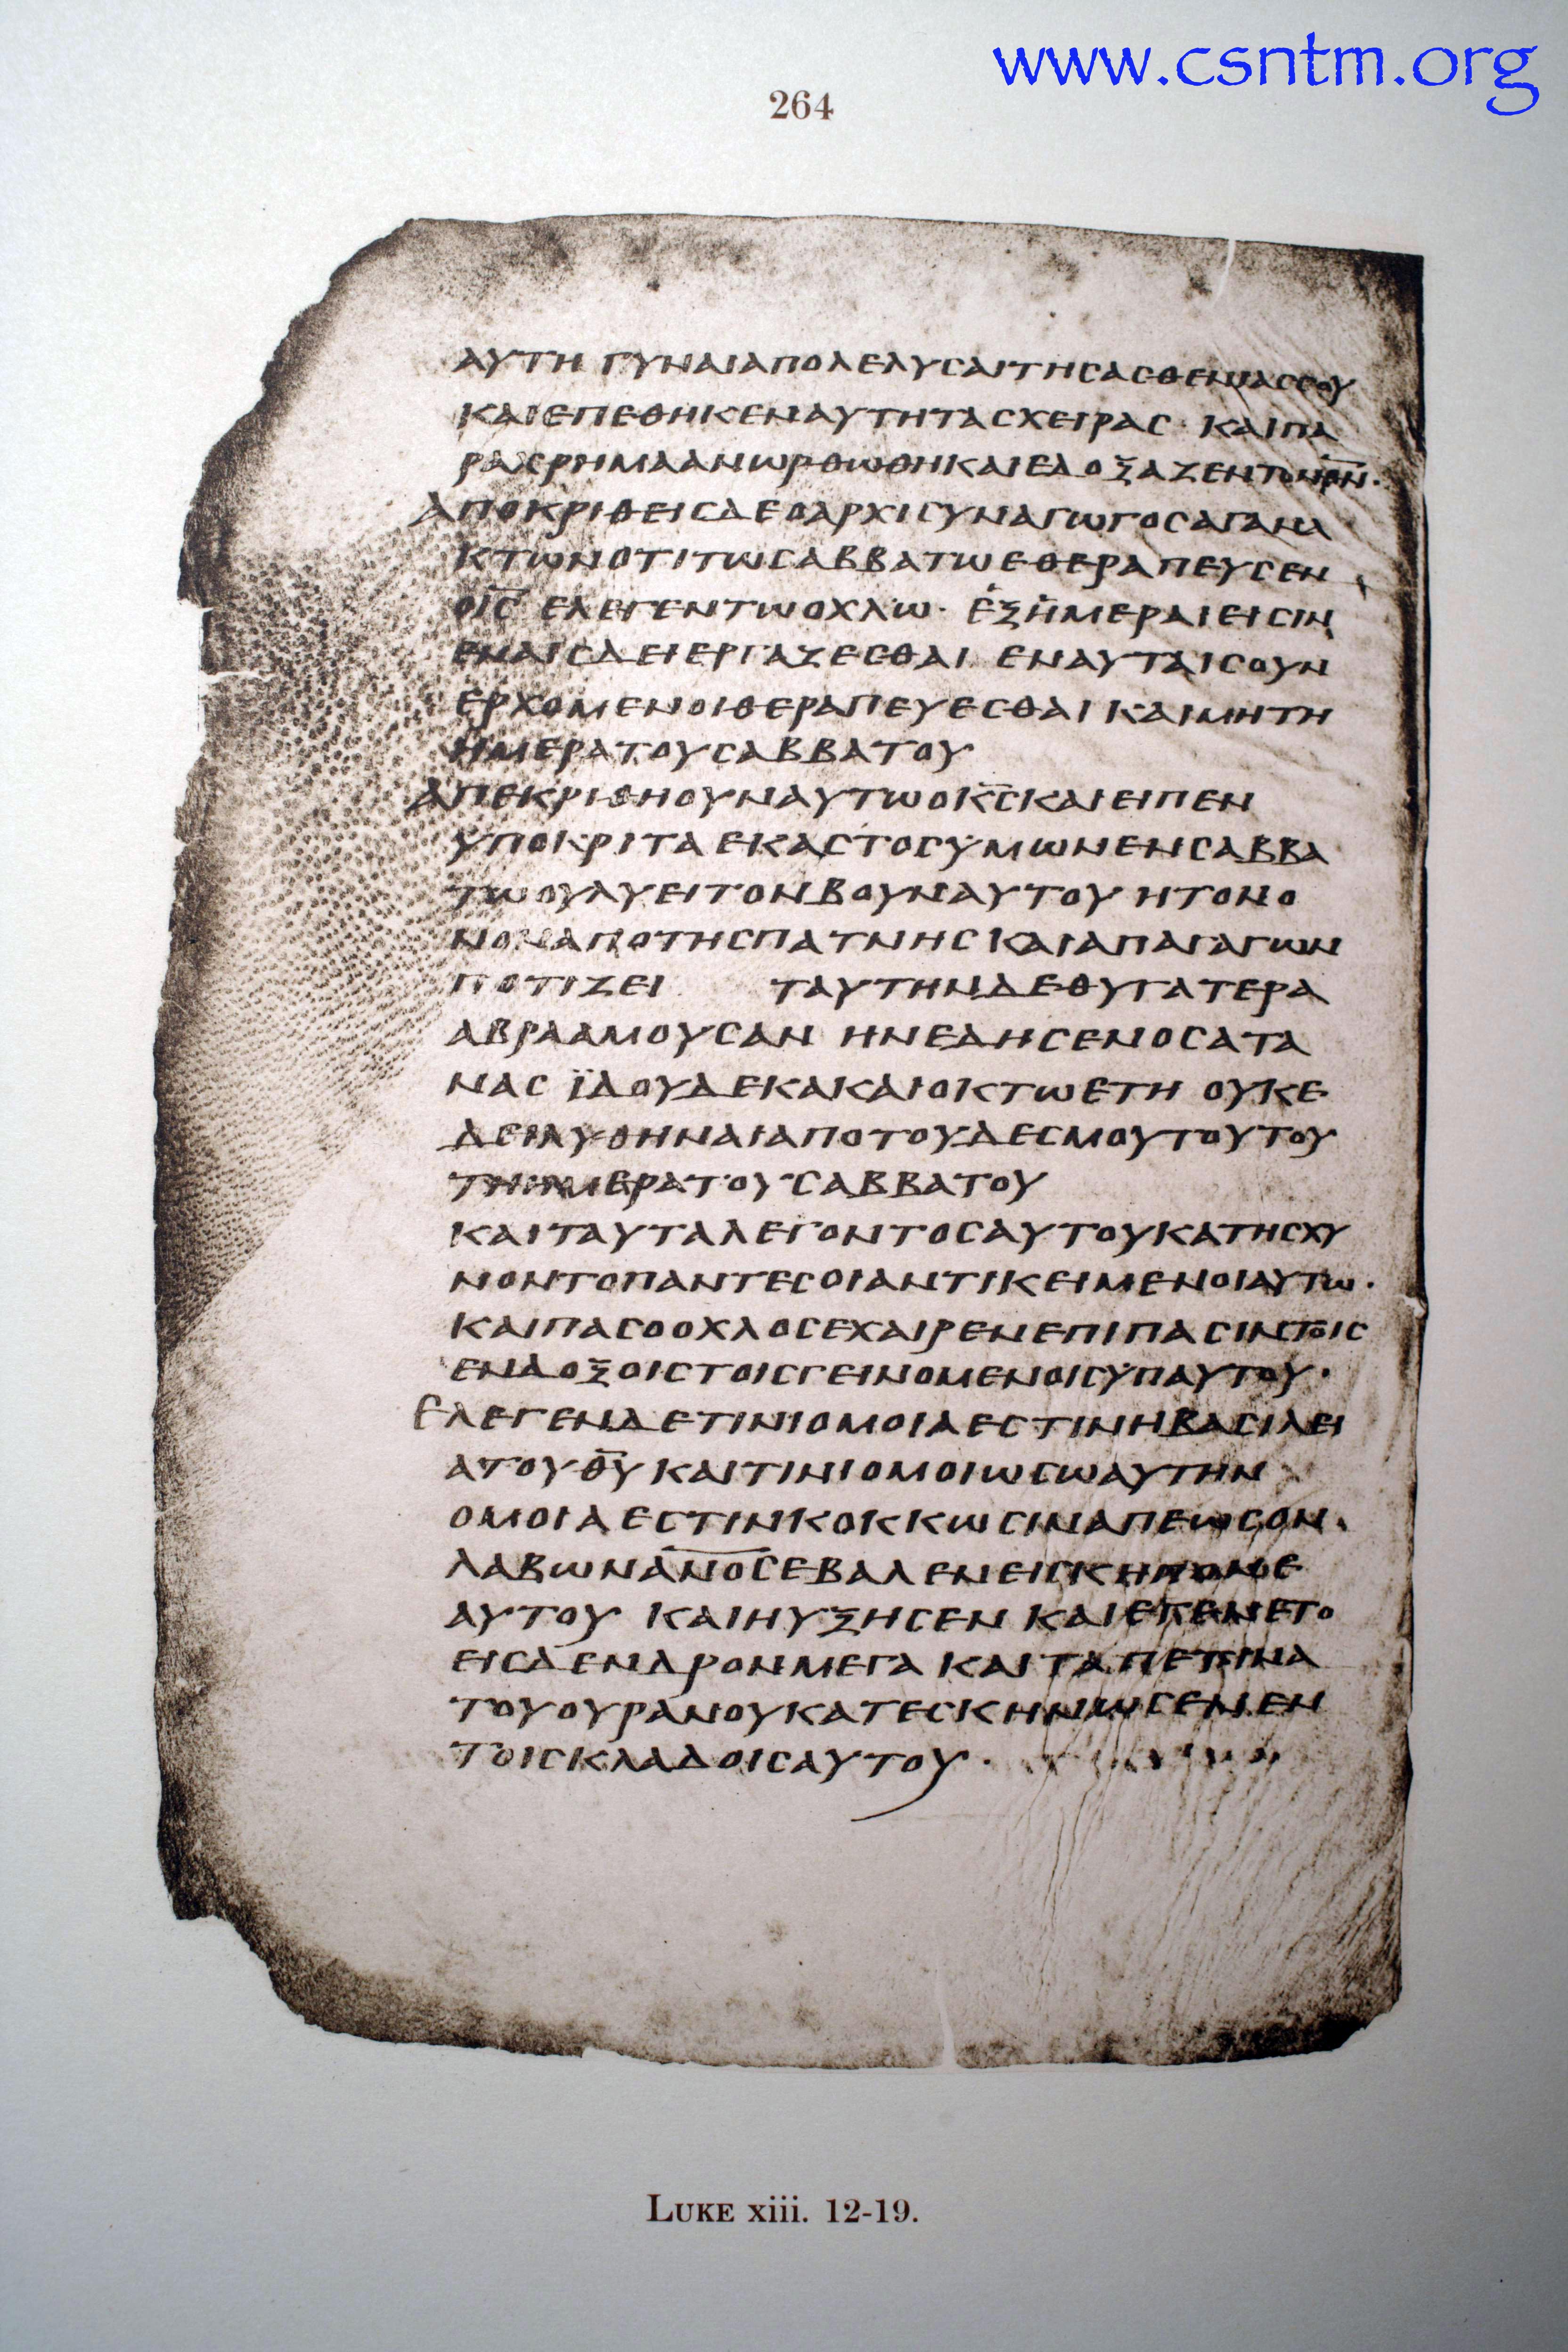 www.csntm.org
264
ΑΥΤΗ ΓΥΝΑΙΑΠΟΛΕΛΥΣΑΙΤΗΣΑΣΘΕΝΙΑΣΣΟΥ
ΚΑΙΕΠΕΘΗΚΕΝΑΥΤΗΤΑΣΧΕΙΡΑΣ · ΚΑΙΠΑ
ΡΑΧΡΗΜΑΑΝΩΡΘΩΘΗΚΑΙΕΔΟΞΑΖΕΝΤΟΝΘΝ·
ΑΠΟΚΡΙΘΕΙΣΔΕΟΑΡΧΙΣΥΝΑΓΩΓΟΣΑΓΑΝΑ
ΚΤΩΝΟΤΙΤΩΣΑΒΒΑΤΩΕΘΕΡΑΠΕΥΣΕΝ
ΟΙ̅Σ̅ ΕΛΕΓΕΝΤΩΟΧΛΩ · ΕΞΗΜΕΡΑΙΕΙΣΙΝ
ΕΝΑΙΣΔΕΙΕΡΓΑΖΕΣΘΑΙ ΕΝΑΥΤΑΙΣΟΥΝ
ΕΡΧΟΜΕΝΟΙΘΕΡΑΠΕΥΕΣΘΑΙ ΚΑΙΜΗΤΗ
ΗΜΕΡΑΤΟΥΣΑΒΒΑΤΟΥ
ΑΠΕΚΡΙΘΗΟΥΝΑΥΤΩΟΚ̅Σ̅ΚΑΙΕΙΠΕΝ
ΥΠΟΚΡΙΤΑ ΕΚΑΣΤΟΣΥΜΩΝΕΝΣΑΒΒΑ
ΤΩΟΥΛΥΕΙΤΟΝΒΟΥΝΑΥΤΟΥ ΗΤΟΝΟ
ΝΟΝΑΠΟΤΗΣΠΑΤΝΗΣ ΚΑΙΑΠΑΓΑΓΩΝ
ΠΟΤΙΖΕΙ ΤΑΥΤΗΝΔΕΘΥΓΑΤΕΡΑ
ΑΒΡΑΑΜΟΥΣΑΝ ΗΝΕΔΗΣΕΝΟΣΑΤΑ
ΝΑΣ ΪΔΟΥΔΕΚΑΚΑΙΟΚΤΩΕΤΗ ΟΥΚΕ
ΔΕΙΛΥΘΗΝΑΙΑΠΟΤΟΥΔΕΣΜΟΥΤΟΥΤΟΥ
ΤΗΗΜΕΡΑΤΟΥΣΑΒΒΑΤΟΥ
ΚΑΙΤΑΥΤΑΛΕΓΟΝΤΟΣΑΥΤΟΥΚΑΤΗΣΧΥ
ΝΟΝΤΟΠΑΝΤΕΣΟΙΑΝΤΙΚΕΙΜΕΝΟΙΑΥΤΩ ·
ΚΑΙΠΑΣΟΟΧΛΟΣΕΧΑΙΡΕΝΕΠΙΠΑΣΙΝΤΟΙΣ
ΕΝΔΟΞΟΙΣΤΟΙΣΓΕΙΝΟΜΕΝΟΙΣΥΠΑΥΤΟΥ ·
ΕΛΕΓΕΝΔΕΤΙΝΙΟΜΟΙΑΕΣΤΙΝΗΒΑΣΙΛΕΙ
ΑΤΟΥΘ̅Υ̅ ΚΑΙΤΙΝΙΟΜΟΙΩΣΩΑΥΤΗΝ
ΟΜΟΙΑΕΣΤΙΝΚΟΚΚΩΣΙΝΑΠΕΩΣΟΝ
ΛΑΒΩΝΑ̅Ν̅Ο̅Σ̅ΕΒΑΛΕΝΕΙΣΚΗΠΟΝΕ
ΑΥΤΟΥ ΚΑΙΗΥΞΗΣΕΝ ΚΑΙΕΓΕΝΕΤΟ
ΕΙΣΔΕΝΔΡΟΝΜΕΓΑ ΚΑΙΤΑΠΕΤΙΝΑ
ΤΟΥΟΥΡΑΝΟΥΚΑΤΕΣΚΗΝΩΣΕΝ ΕΝ
ΤΟΙΣΚΛΑΔΟΙΣΑΥΤΟΥ ·
LUKE xiii. 12-19.